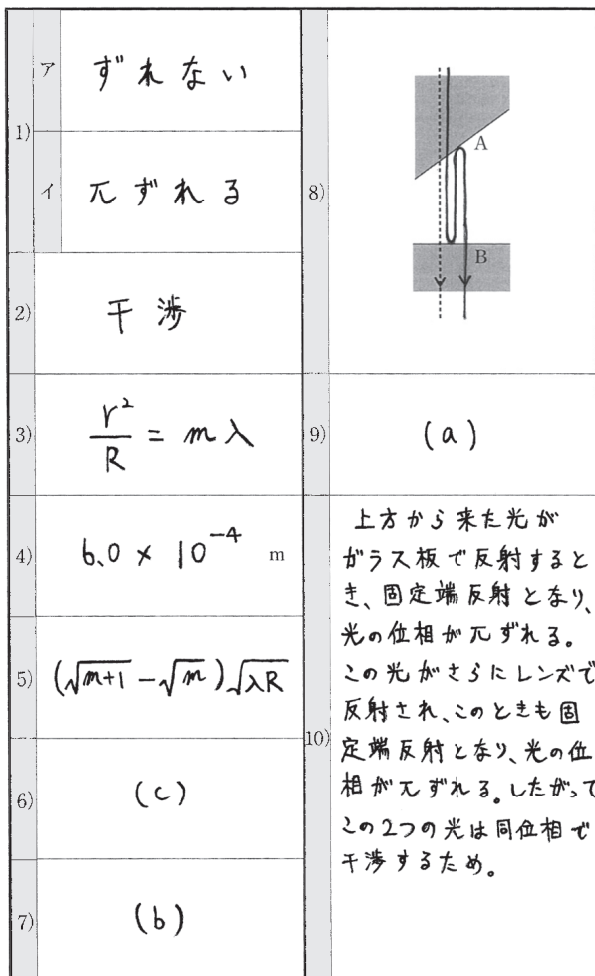 1)
ア
ずれない
イ
πずれる
2)
干渉
3)
r²/R = mλ
4)
6.0 × 10⁻⁴ m
5)
(√m+1 − √m)√λR
6)
(c)
7)
(b)
8)
A
B
9)
(a)
10)
上方から来た光が
ガラス板で反射すると
き、固定端反射となり、
光の位相がπずれる。
この光がさらにレンズで
反射され、このときも固
定端反射となり、光の位
相がπずれる。したがって
この2つの光は同位相で
干渉するため。